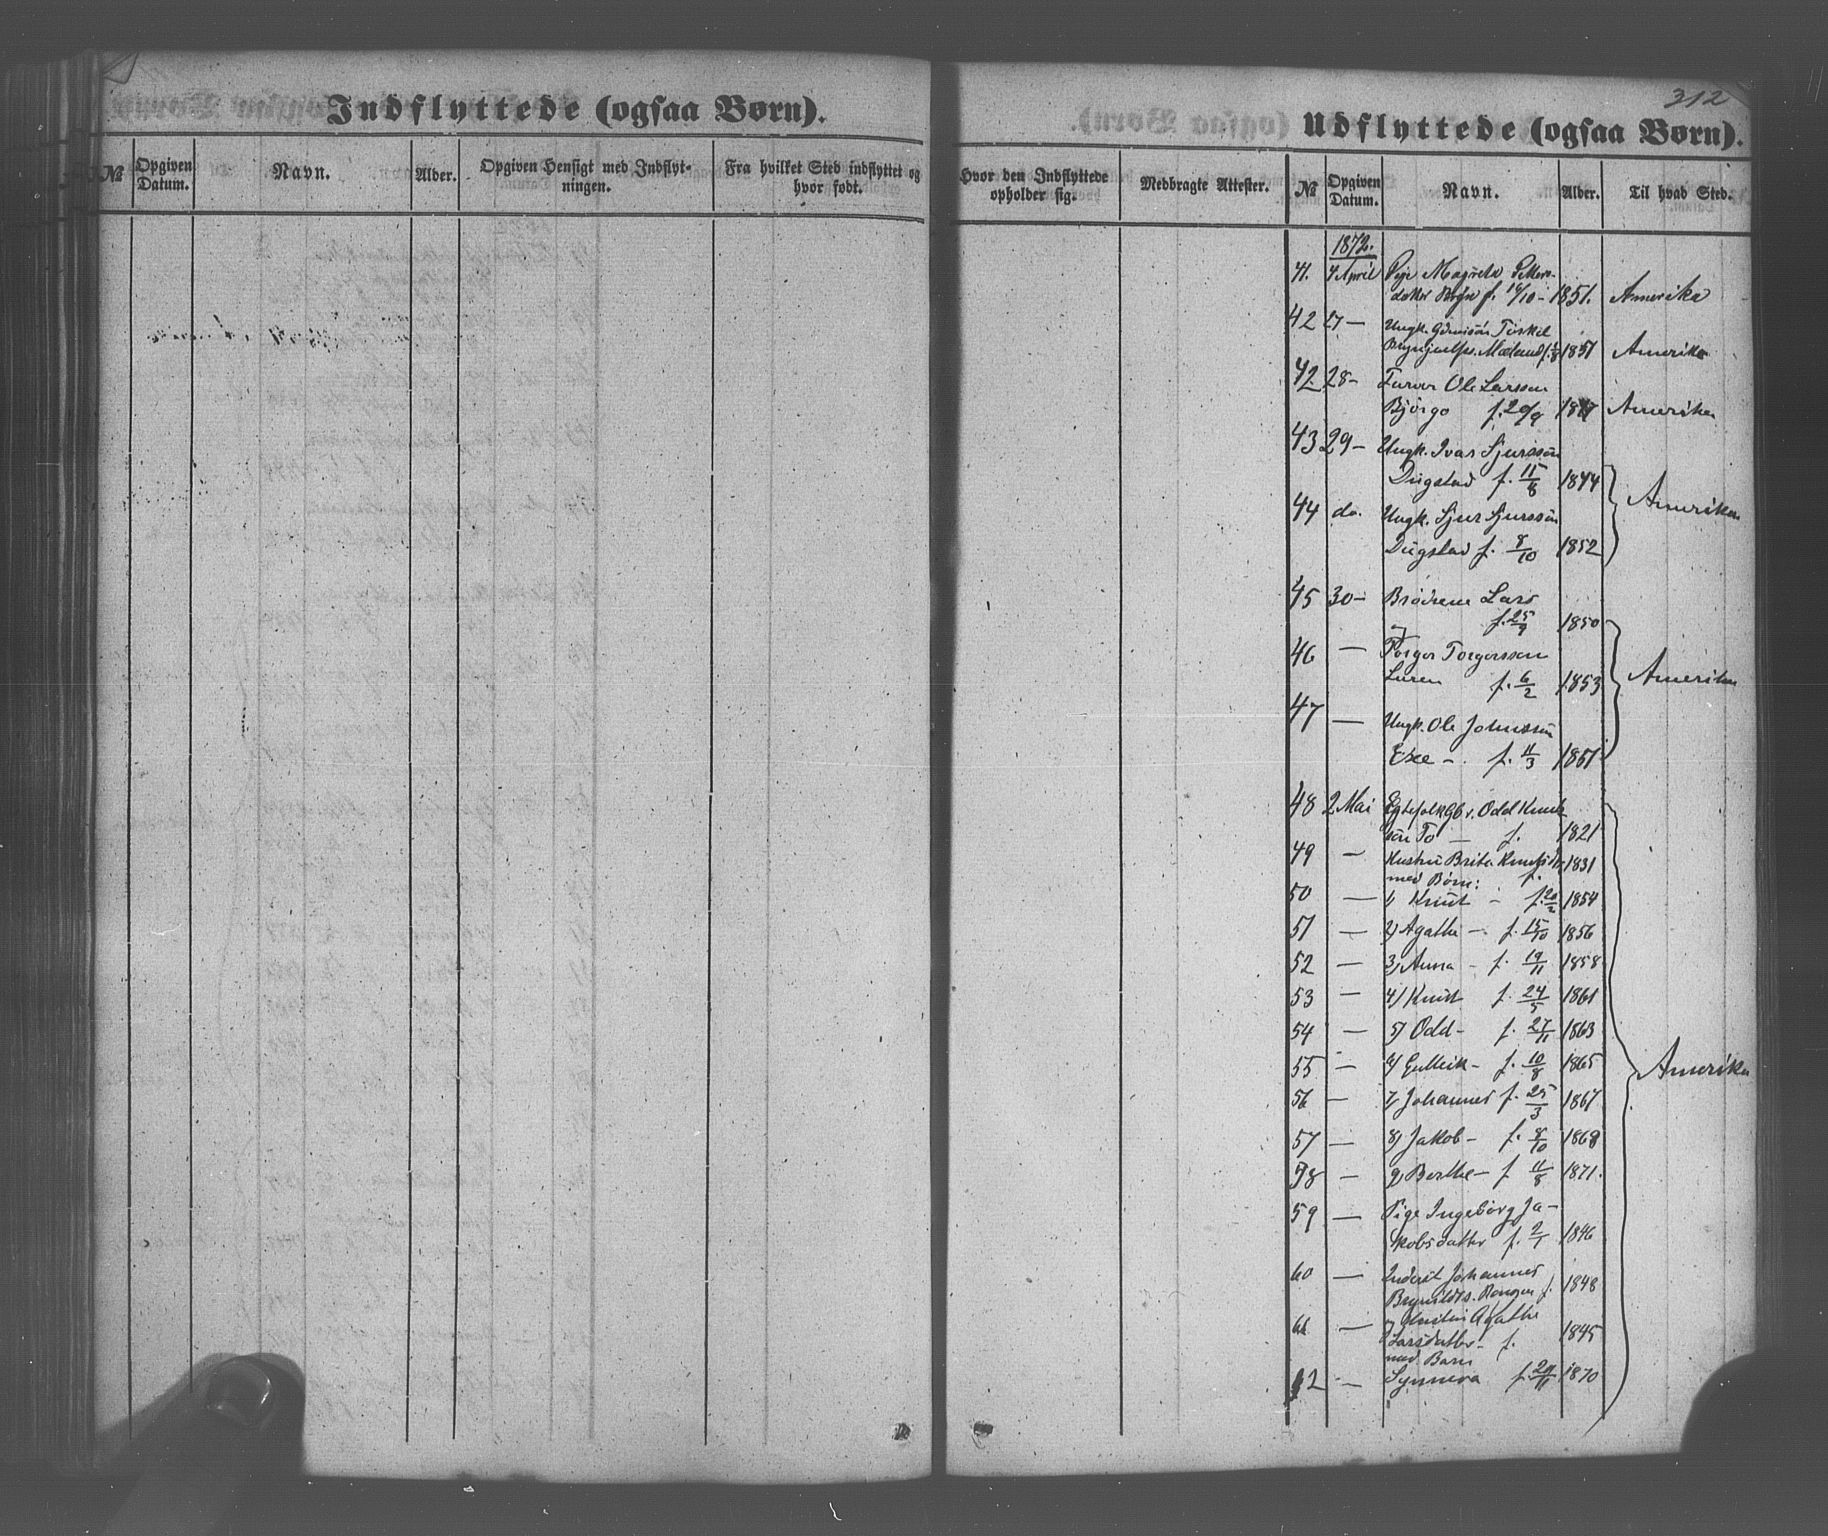 Indflyttede (ogsaa Børn).
№ Opgiven Datum. Navn. Alder. Opgiven Hensigt med Indflyt-ningen. Fra hvilket Sted indflyttet og hvor født.
312
Udflyttede (ogsaa Børn).
Hvor den Indflyttede opholder sig. Medbragte Attester. № Opgiven Datum. Navn. Alder. Til hvad Sted.
1872.
41. April Pige Magreta
datter f. 16/10 - 1851. Amerika
42 27 — Ungk. Torkil
Mæland 1851 Amerika
42. 28- Farver Ole Larssen
Bjørgo f. 20/9 Amerika
43 29- Ungk. Ivar Sjurssøn
Dugstad f. 15/8 1844
Amerika
44 do. Ungk. Sjur Sjurssøn
Dugstad f. 8/10 1852
45 30- Brødrene Lars
f. 25/9 1850
46 — Torger Torgerssen
Amerika
f. 6/2 1853
47 — Ungk. Ole Johnssøn
f. 11/3 1851
48 2 Mai Egtefolk Gbr. Odd Knut-
søn To — f. 1821
49 — Hustru Brita 1831
med Børn:
50 — 1, Knut - f. 20/2 1854
51 — 2, Agathe - f. 15/10 1856
52 — 3, Anna - f. 19/11 1858
53 — 4, Knut f. 24/5 1861
54 — 5, Odd - f. 27/11 1863
55 — Gulleik - f. 10/8 1865 Amerika
56 — 7, Johannes f. 25/3 1867
57 — 8, Jakob - f. 8/10 1868
58 — 9, Berthe - f 11/8 1871.
59 — Pige Ingebørg Ja-
kobsdatter f. 2/1 1846
60 — Inderst Johannes
f. 1848
61 — Agathe
Larsdatter - f. 1845
med Barn
2 — Synneva 1870